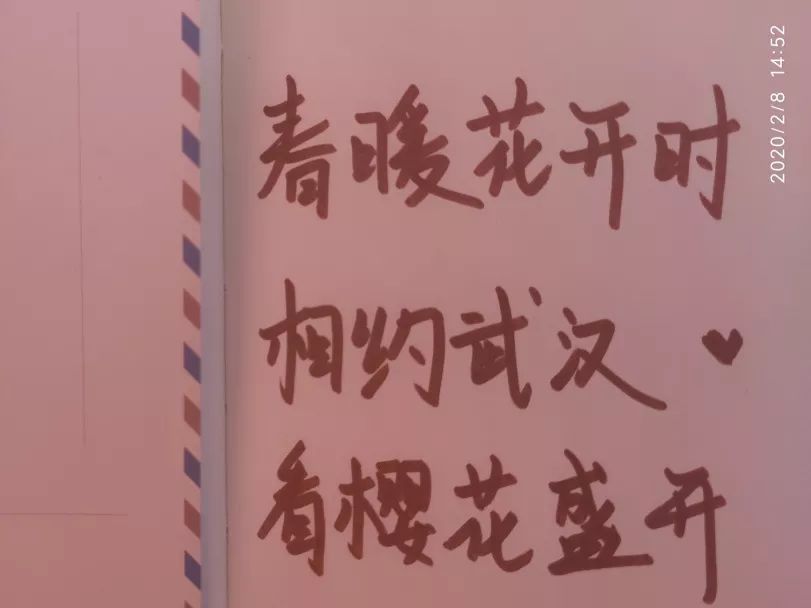 春暖花开时
相约武汉 ♥
看樱花盛开
2020/2/8 14:52